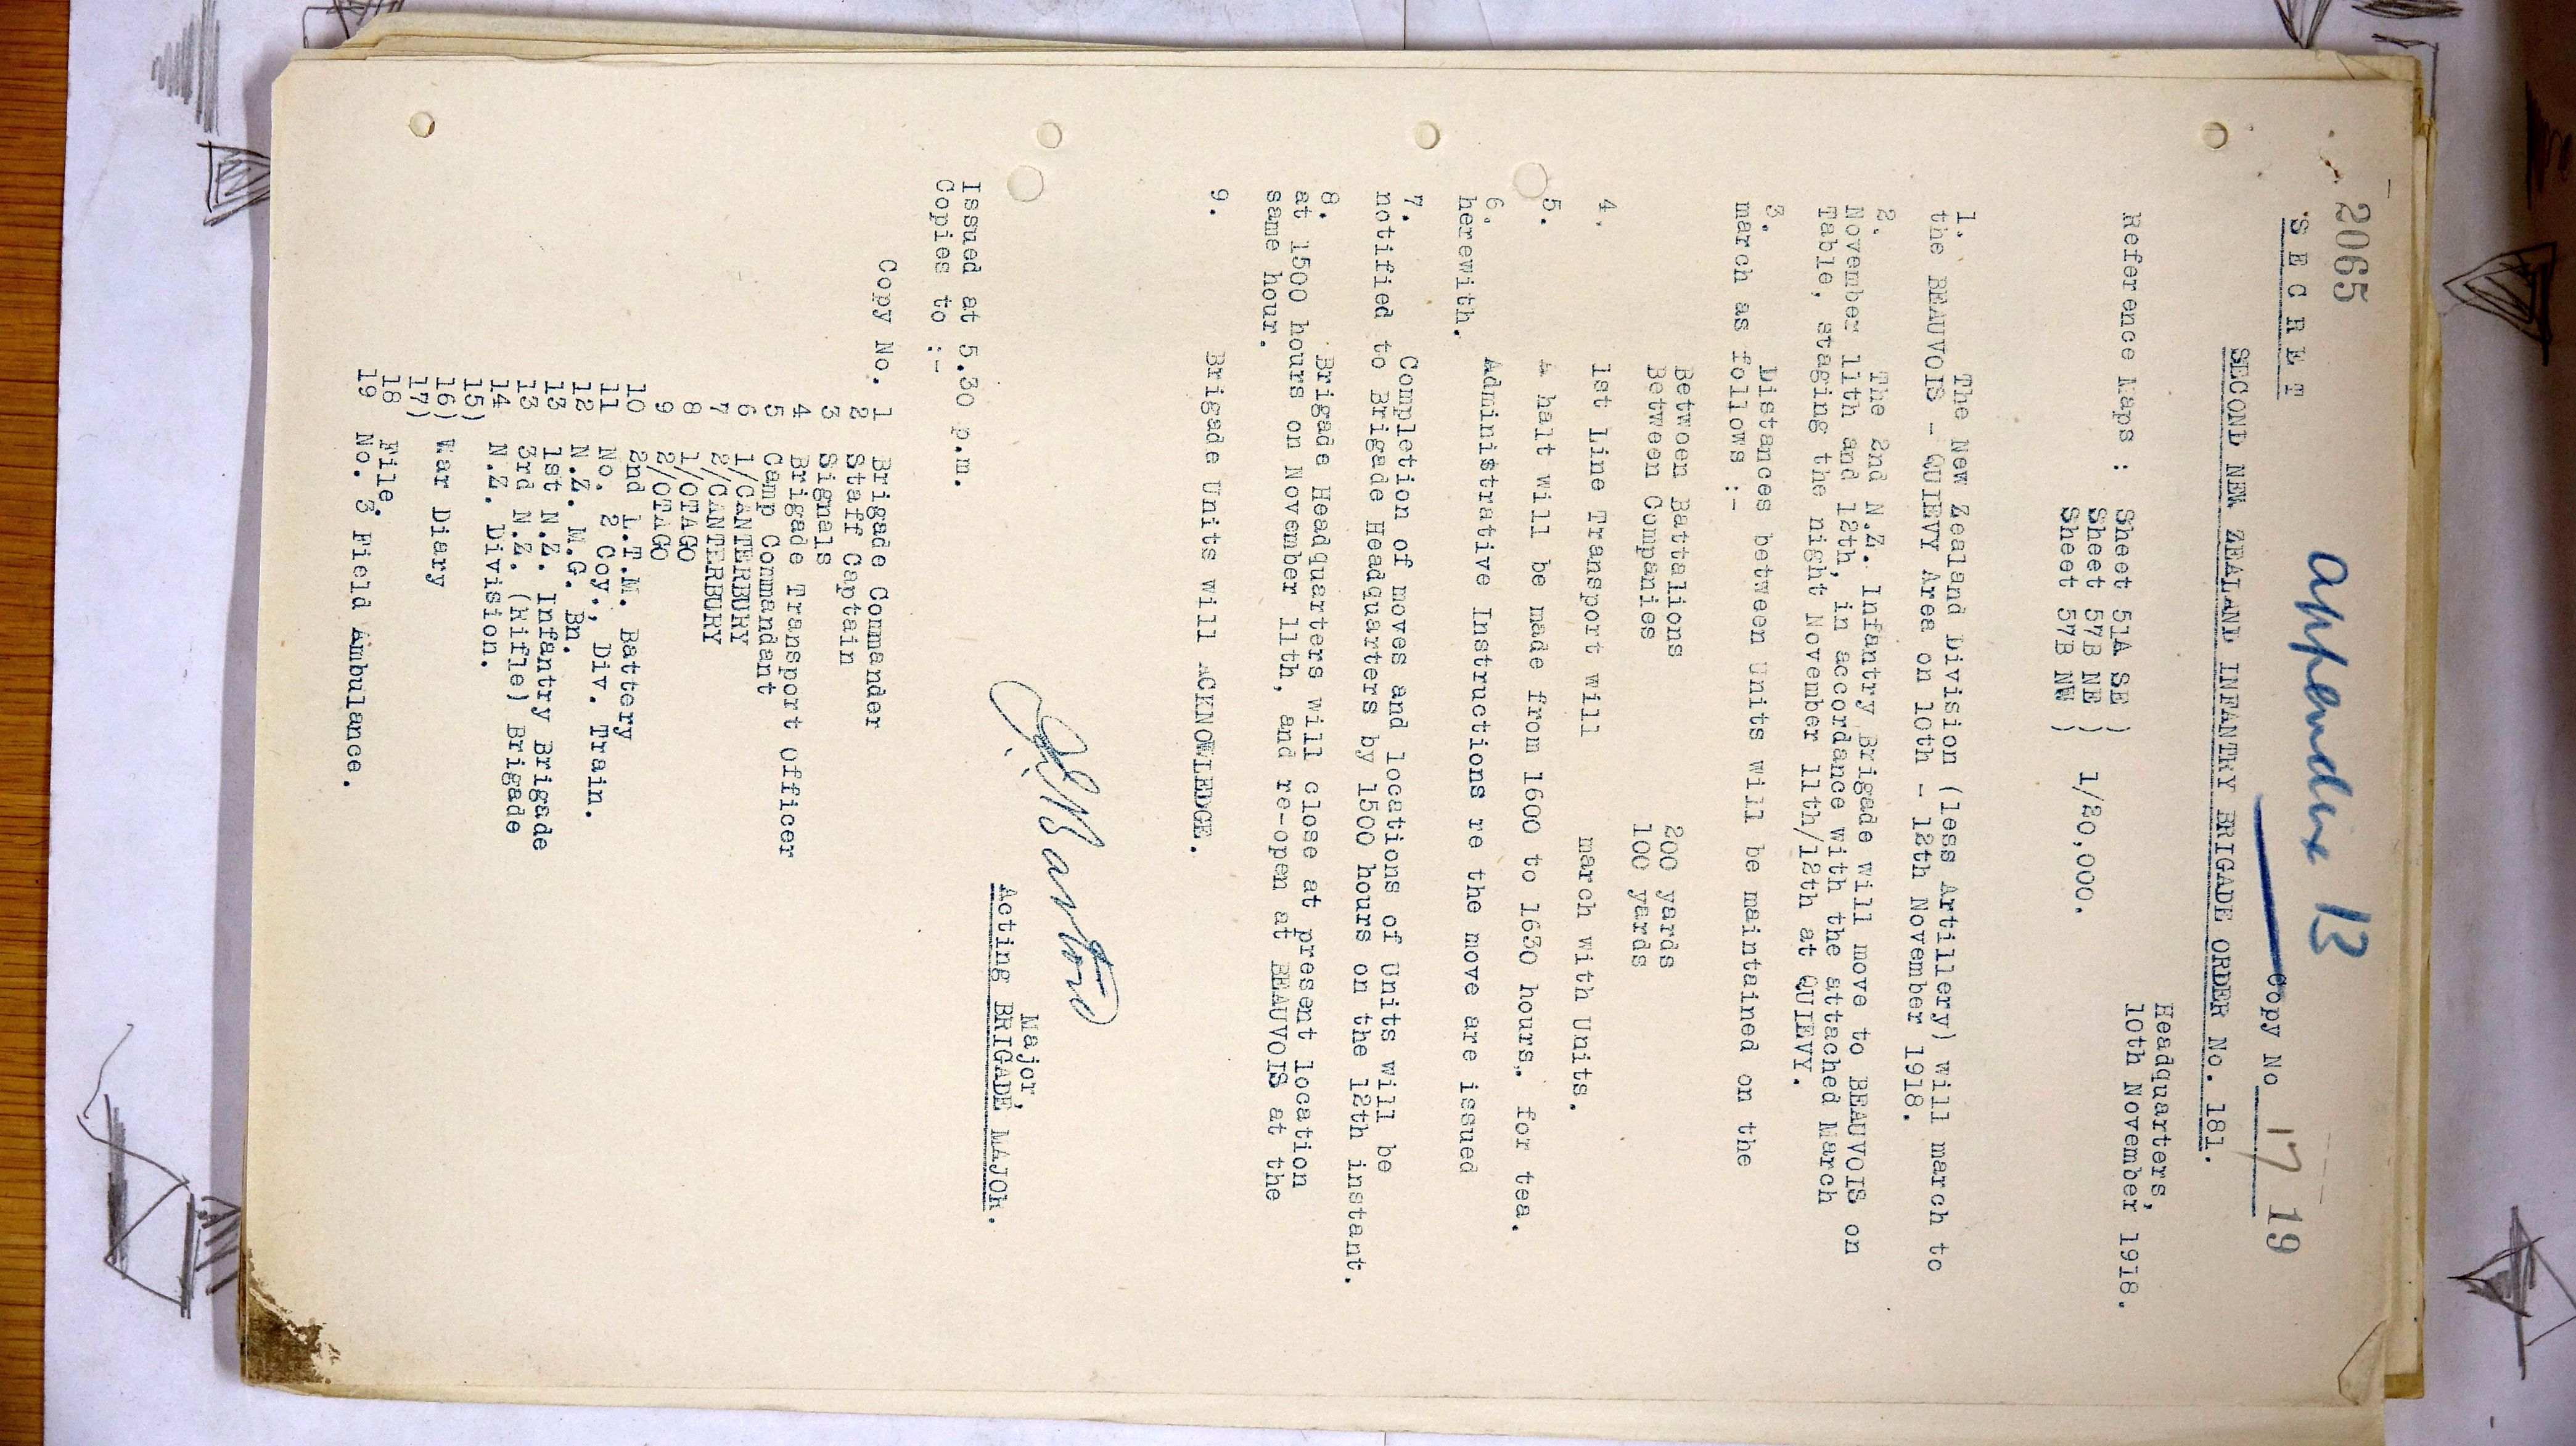 2065
Appendix 13
SECRET
Copy No 17
19
SECOND NEW ZEALAND INFANTRY BRIGADE ORDER No. 181.
Headquarters,
10th November 1918.
Reference Maps : Sheet 51A SE )
Sheet 57B NE ) 1/20,000.
Sheet 57B NW )
1. The New Zealand Division (less Artillery) will march to
the BEAUVOIS - QUIEVY Area on 10th - 12th November 1918.
2. The 2nd N.Z. Infantry Brigade will move to BEAUVOIS on
November 11th and 12th, in accordance with the attached March
Table, staging the night November 11th/12th at QUIEVY.
3. Distances between Units will be maintained on the
march as follows :-
Between Battalions 200 yards
Between Companies 100 yards
4. 1st Line Transport will march with Units.
5. A halt will be made from 1600 to 1630 hours. for tea.
6. Administrative Instructions re the move are issued
herewith.
7. Completion of moves and locations of Units will be
notified to Brigade Headquarters by 1500 hours on the 12th instant.
8. Brigade Headquarters will close at present location
at 1500 hours on November 11th, and re-open at BEAUVOIS at the
same hour.
9. Brigade Units will ACKNOWLEDGE.
Major,
Acting BRIGADE MAJOR.
Issued at 5.30 p.m.
Copies to :-
Copy No. 1 Brigade Commander
2 Staff Captain
3 Signals
4 Brigade Transport Officer
5 Camp Commandant
6 1/CANTERBURY
7 2/CANTERBURY
8 1/OTAGO
9 2/OTAGO
10 2nd L.T.M. Battery
11 No. 2 Coy., Div. Train.
12 N.Z. M.G. Bn.
13 1st N.Z. Infantry Brigade
13 3rd N.Z. (Rifle) Brigade
14 N.Z. Division.
15)
16) War Diary
17)
18 File.
19 No. 3 Field Ambulance.